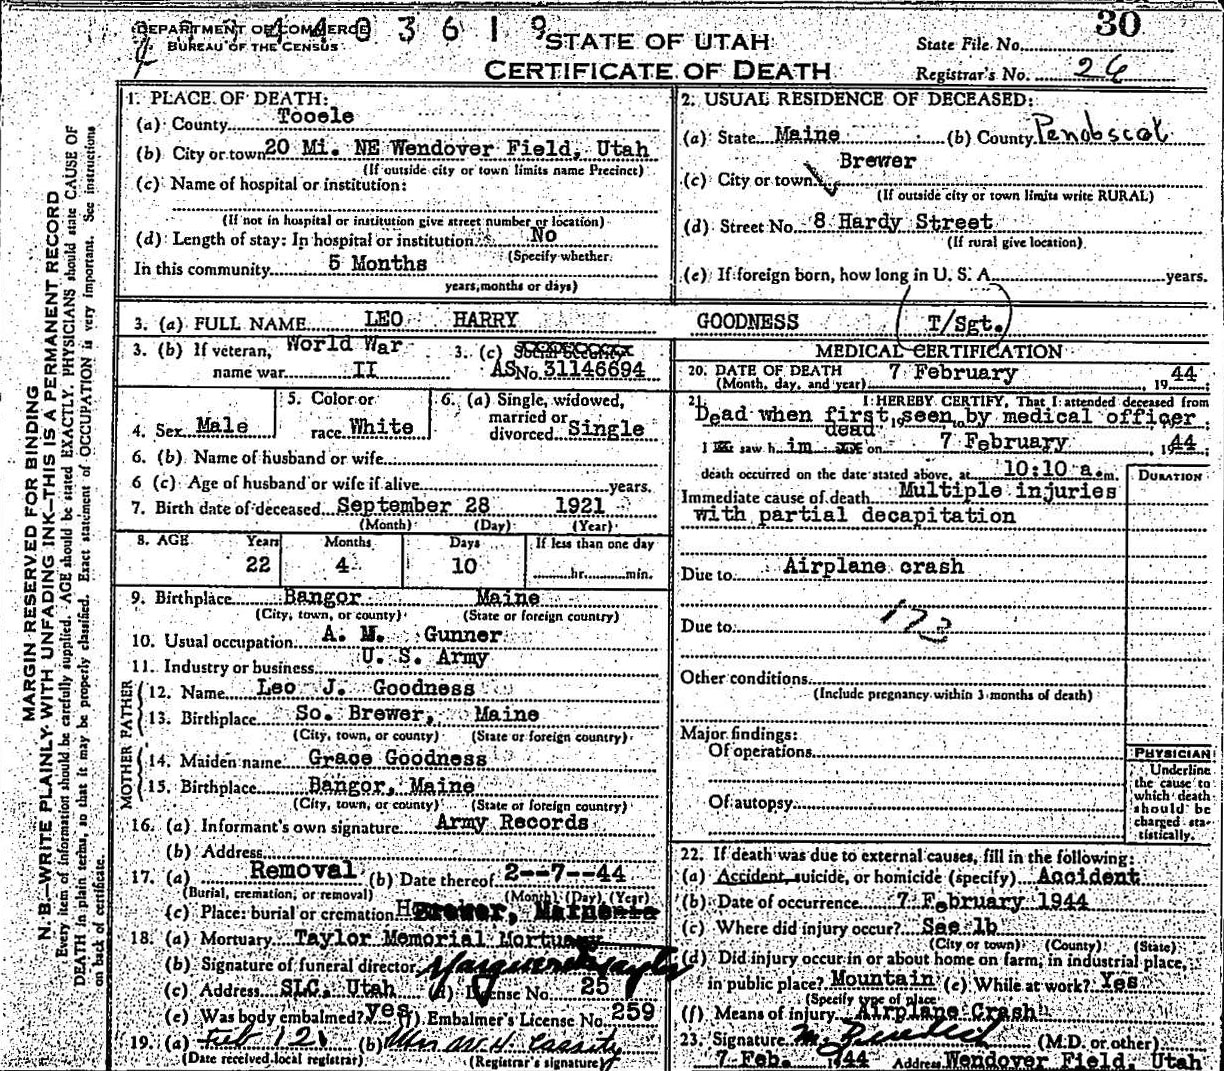 DEPARTMENT OF COMMERCE
BUREAU OF THE CENSUS
3 6 1 9
STATE OF UTAH
CERTIFICATE OF DEATH
30
State File No.
Registrar's No. 26
MARGIN RESERVED FOR BINDING
N. B.—WRITE PLAINLY WITH UNFADING INK—THIS IS A PERMANENT RECORD
Every item of information should be carefully supplied. AGE should be stated EXACTLY. PHYSICIANS should state CAUSE OF
DEATH in plain terms, so that it may be properly classified. Exact statement of OCCUPATION is very important. See instructions
on back of certificate.
1. PLACE OF DEATH:
(a) County Tooele
(b) City or town 20 Mi. NE Wendover Field, Utah
(If outside city or town limits name Precinct)
(c) Name of hospital or institution:
(If not in hospital or institution give street number or location)
(d) Length of stay: In hospital or institution No
(Specify whether
In this community 5 Months
years, months or days)
2. USUAL RESIDENCE OF DECEASED:
(a) State Maine (b) County Penobscot
(c) City or town Brewer
(If outside city or town limits write RURAL)
(d) Street No. 8 Hardy Street
(If rural give location)
(e) If foreign born, how long in U. S. A. years.
3. (a) FULL NAME LEO HARRY GOODNESS T/Sgt.
3. (b) If veteran, World War
name war II
3. (c) Social Security
ASNo. 31146694
4. Sex Male
5. Color or
race White
6. (a) Single, widowed,
married or
divorced Single
6. (b) Name of husband or wife
6 (c) Age of husband or wife if alive years.
7. Birth date of deceased September 28 1921
(Month) (Day) (Year)
8. AGE Years Months Days If less than one day
22 4 10 hr. min.
9. Birthplace Bangor Maine
(City, town, or county) (State or foreign country)
10. Usual occupation A. M. Gunner
11. Industry or business U. S. Army
FATHER
12. Name Leo J. Goodness
13. Birthplace So. Brewer, Maine
(City, town, or county) (State or foreign country)
MOTHER
14. Maiden name Grace Goodness
15. Birthplace Bangor, Maine
(City, town, or county) (State or foreign country)
16. (a) Informant's own signature Army Records
(b) Address
17. (a) Removal (b) Date thereof 2--7--44
(Burial, cremation, or removal) (Month) (Day) (Year)
(c) Place: burial or cremation Brewer, Maine
18. (a) Mortuary Taylor Memorial Mortuary
(b) Signature of funeral director
(c) Address SLC, Utah (d) License No. 25
(e) Was body embalmed? yes (f) Embalmer's License No. 259
19. (a) Feb 12 (b) Cassity
(Date received local registrar) (Registrar's signature)
MEDICAL CERTIFICATION
20. DATE OF DEATH 7 February 1944
(Month, day, and year)
21. I HEREBY CERTIFY, That I attended deceased from
Dead when first seen by medical officer
dead
I saw him on 7 February 1944
death occurred on the date stated above, at 10:10 a.m.
DURATION
Immediate cause of death Multiple injuries
with partial decapitation
Due to Airplane crash
173
Due to
Other conditions
(Include pregnancy within 3 months of death)
Major findings:
Of operations
Of autopsy
PHYSICIAN
Underline
the cause to
which death
should be
charged sta-
tistically.
22. If death was due to external causes, fill in the following:
(a) Accident, suicide, or homicide (specify) Accident
(b) Date of occurrence 7 February 1944
(c) Where did injury occur? See 1b
(City or town) (County) (State)
(d) Did injury occur in or about home on farm, in industrial place,
in public place? Mountain (e) While at work? Yes
(Specify type of place
(f) Means of injury Airplane Crash
23. Signature (M.D. or other)
7 Feb. 1944 Address Wendover Field, Utah